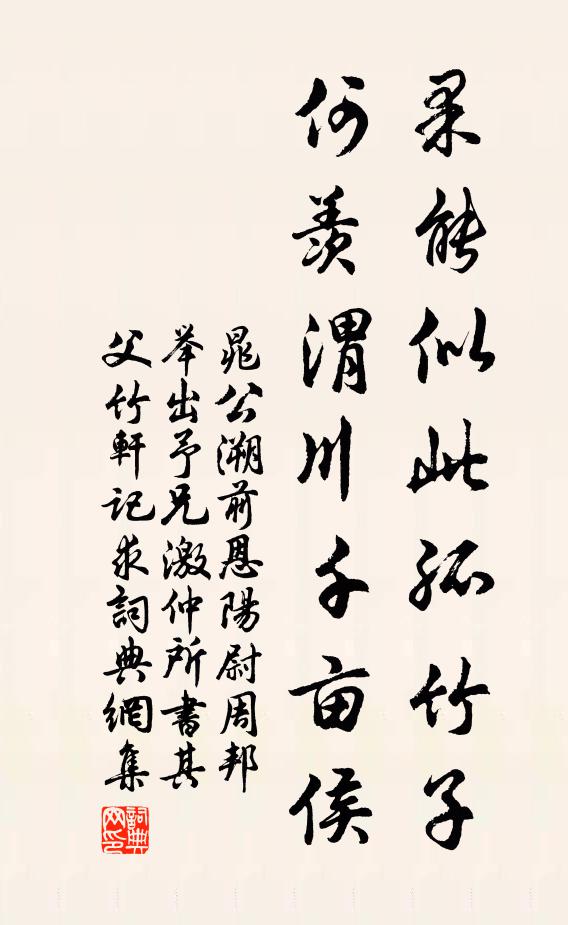 果能似此孤竹子
何羡渭川千亩侯
晁公溯前恩陽尉周邦
举出予兄激仲所書其
父竹軒记求詞典網集
詞典網印